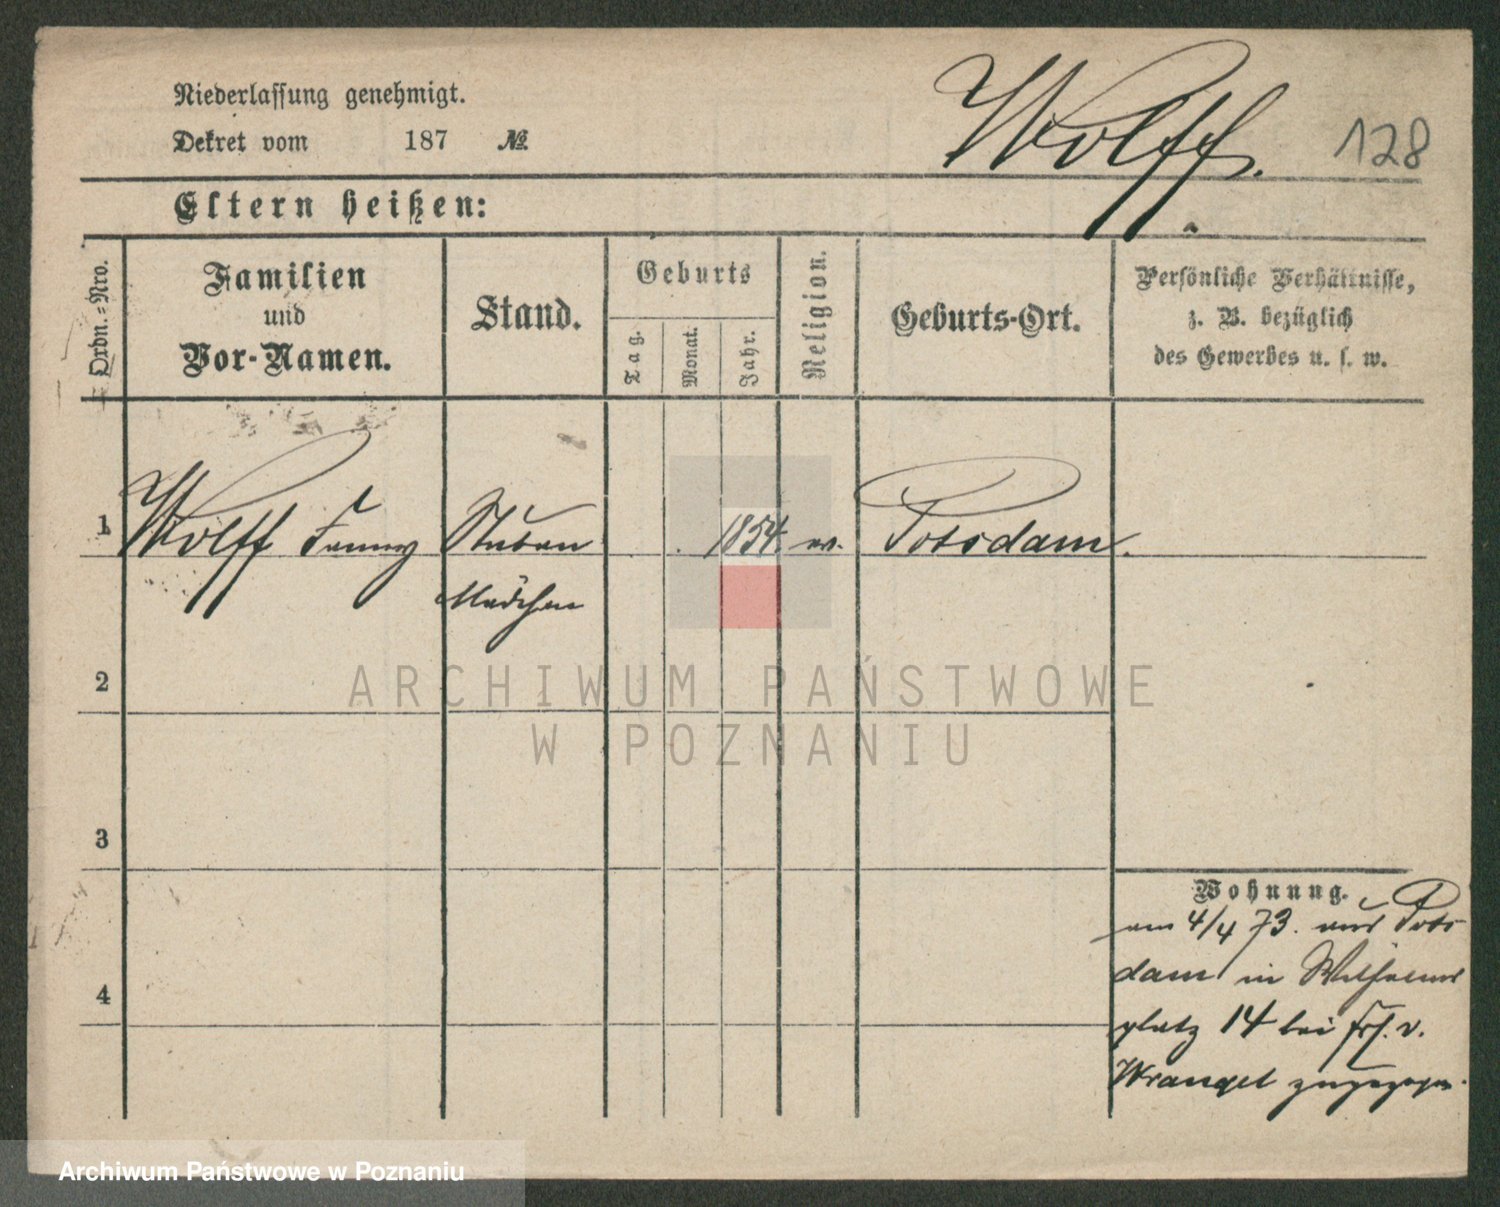 Niederlassung genehmigt.
Wolff.
128
Dekret vom 187 №
Eltern heißen:
Ordn.-Nro.
Familien
und
Vor-Namen.
Stand.
Geburts
Tag.
Monat.
Jahr.
Religion.
Geburts-Ort.
Persönliche Verhältnisse,
z. B. bezüglich
des Gewerbes u. s. w.
1 Wolff Fanny Stuben 1854. ev. Potsdam.
Mädchen
2
ARCHIWUM PAŃSTWOWE
W POZNANIU
3
Wohnung.
am 4/4 73. aus Pots
dam in Wilhelms
4
platz 14 bei v.
Wrangel zugezogen.
Archiwum Państwowe w Poznaniu